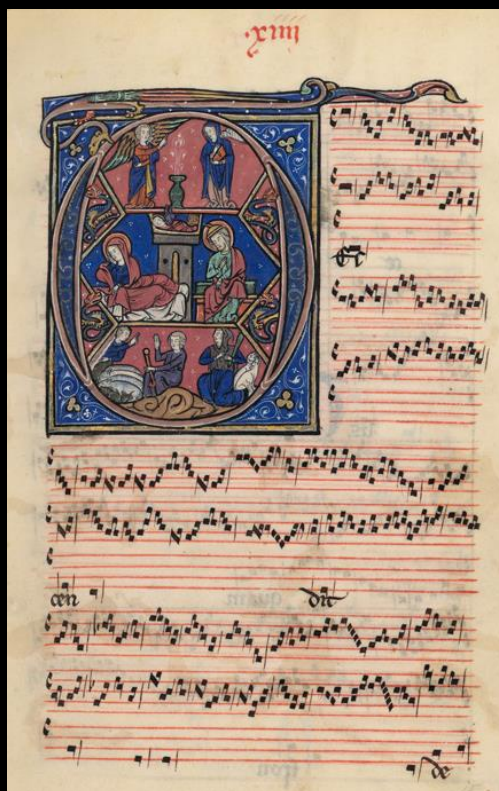 .xiiij
D
eſ
cen dit
de